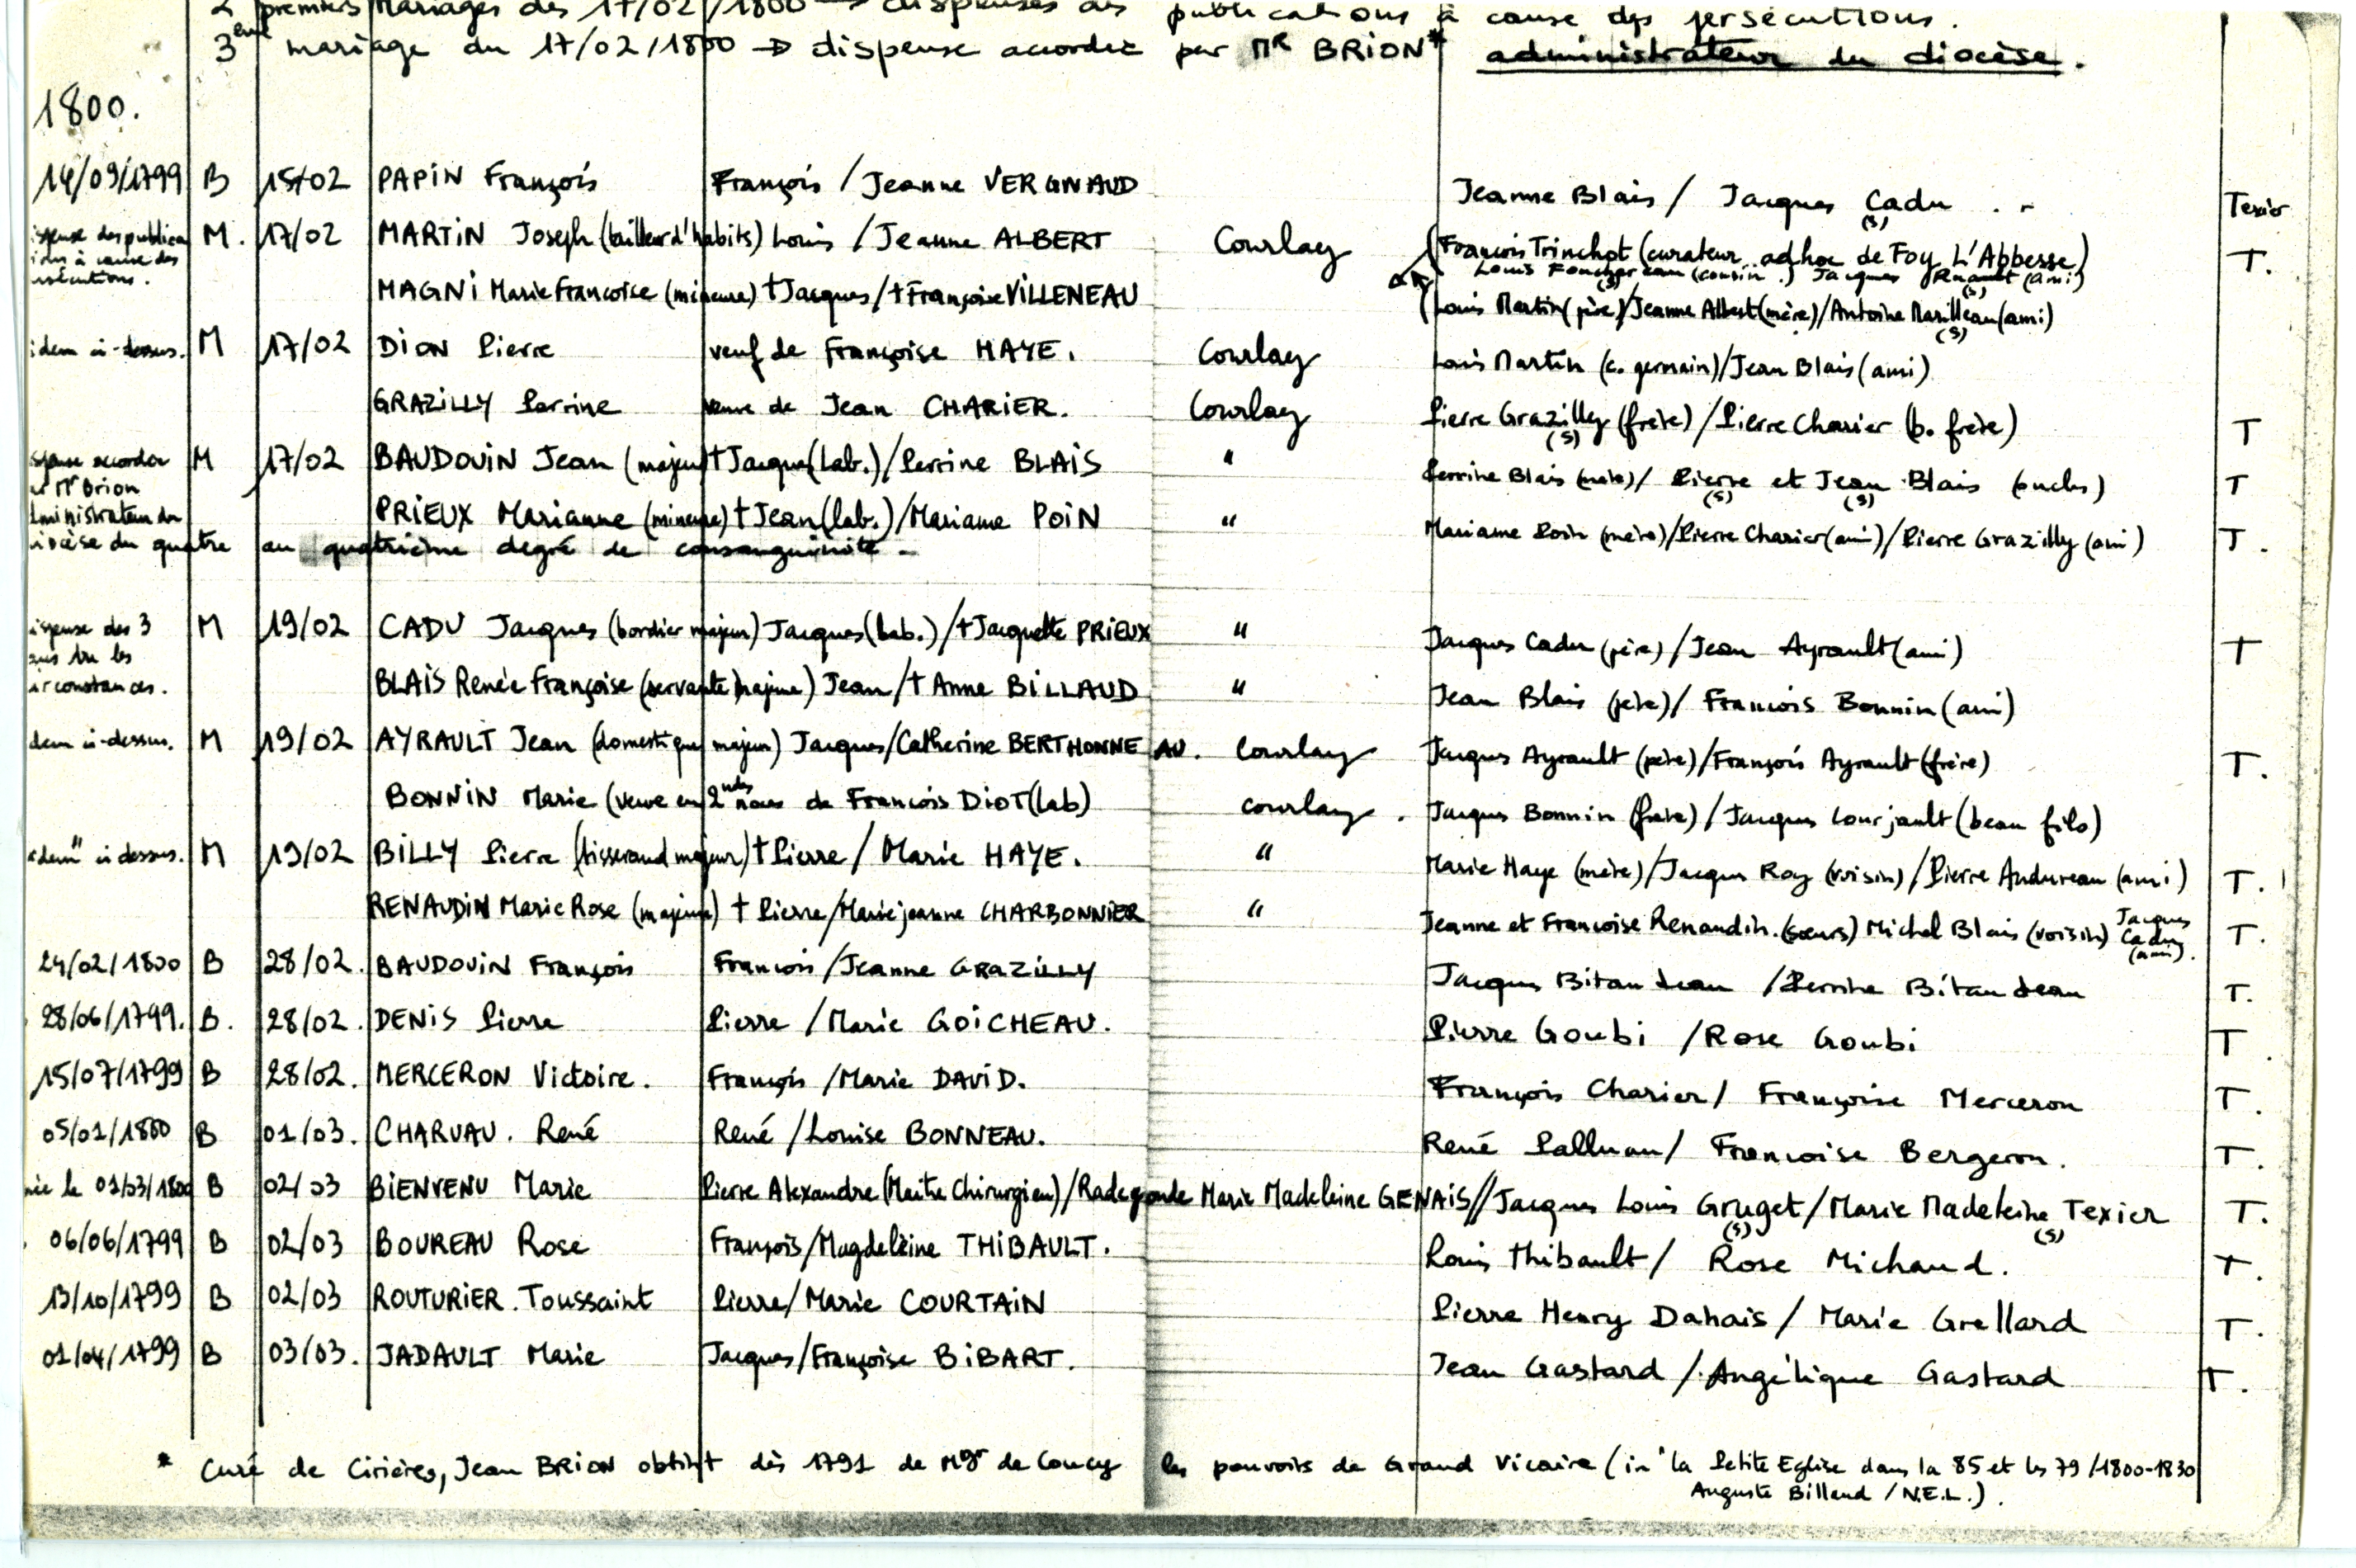 2 premiers mariages des 17/02/1800 → dispenses des publications à cause des persécutions.
3ème mariage du 17/02/1800 → dispense accordée par Mr BRION* administrateur du diocèse.
1800.
14/09/1799 B 15/02 PAPIN François François / Jeanne VERGNAUD Jeanne Blais / Jacques Cadu (s) Texier
ispense des publica M. 17/02 MARTIN Joseph (tailleur d'habits) Louis / Jeanne ALBERT Courlay (François Trinchot (curateur ad hoc de Foy L'Abbesse) T.
ions à cause des Louis Fouchereau (cousin) Jacques (ami)
rsécutions. MAGNI Marie Francoise (mineure) †Jacques / †Françoise VILLENEAU (Louis Martin (père) / Jeanne Albert (mère) / Antoine Marilleau (ami) (s)
idem ci-dessus. M 17/02 DION Pierre veuf de Françoise HAYE. Courlay Louis Martin (c. germain) / Jean Blais (ami)
GRAZILLY Perrine veuve de Jean CHARIER. Courlay Pierre Grazilly (s) (frère) / Pierre Charier (b. frère) T
ispense accordée M 17/02 BAUDOUIN Jean (majeur) †Jacques (Lab.) / Perrine BLAIS " Perrine Blais (mère) / Pierre (s) et Jean (s) Blais (oncles) T
ar Mr Brion
dministrateur du PRIEUX Marianne (mineure) †Jean (lab.) / Marianne POIN " Marianne Poin (mère) / Pierre Charier (ami) / Pierre Grazilly (ami) T.
iocèse du quatre au quatrième degré de consanguinité -
ispense des 3 M 19/02 CADU Jacques (bordier majeur) Jacques (lab.) / †Jacquette PRIEUX " Jacques Cadu (père) / Jean Ayrault (ami) T
ans vu les
irconstances. BLAIS Renée Françoise (servante majeure) Jean / † Anne BILLAUD " Jean Blais (père) / Francois Bonnin (ami)
dem ci-dessus. M 19/02 AYRAULT Jean (domestique majeur) Jacques / Catherine BERTHONNEAU. Courlay Jacques Ayrault (père) / François Ayrault (frère) T.
BONNIN Marie (veuve en 2ndes noces de Francois DIOT (lab) courlay. Jacques Bonnin (frère) / Jacques Courjault (beau fils)
"dem" ci dessus. M 19/02 BILLY Pierre (tisserand majeur) † Pierre / Marie HAYE. " Marie Haye (mère) / Jacques Roy (voisin) / Pierre Andureau (ami) T.
RENAUDIN Marie Rose (majeure) † Pierre / Marie jeanne CHARBONNIER " Jeanne et Francoise Renaudin. (sœurs) Michel Blais (voisin) Jacques Cadu (ami). T.
24/02/1800 B 28/02. BAUDOUIN François Francois / Jeanne GRAZILLY Jacques Bitaudeau / Perrine Bitaudeau T.
28/06/1799. B. 28/02. DENIS Pierre Pierre / Marie GOICHEAU. Pierre Goubi / Rose Goubi T.
15/07/1799 B 28/02. MERCERON Victoire. François / Marie DAVID. François Charier / Françoise Merceron T.
05/01/1800 B 01/03. CHARUAU. René René / Louise BONNEAU. René Palluau / Francoise Bergeron. T.
née le 01/03/1800 B 02/03 BIENVENU Marie Pierre Alexandre (Maître Chirurgien) / Radegonde Marie Madeleine GENAIS // Jacques Louis Gruget (s) / Marie Madeleine Texier (s) T.
06/06/1799 B 02/03 BOUREAU Rose François / Magdeleine THIBAULT. Louis Thibault / Rose Michaud. T.
13/10/1799 B 02/03 ROUTURIER. Toussaint Pierre / Marie COURTAIN Pierre Henry Dahais / Marie Grellard T.
01/04/1799 B 03/03. JADAULT Marie Jacques / Françoise BIBART. Jean Gastard / Angélique Gastard T.
* Curé de Cirières, Jean BRION obtint dès 1791 de Mgr de Coucy les pouvoirs de Grand Vicaire (in "la Petite Eglise dans la 85 et les 79 / 1800-1830
Auguste Billaud / N.E.L.).